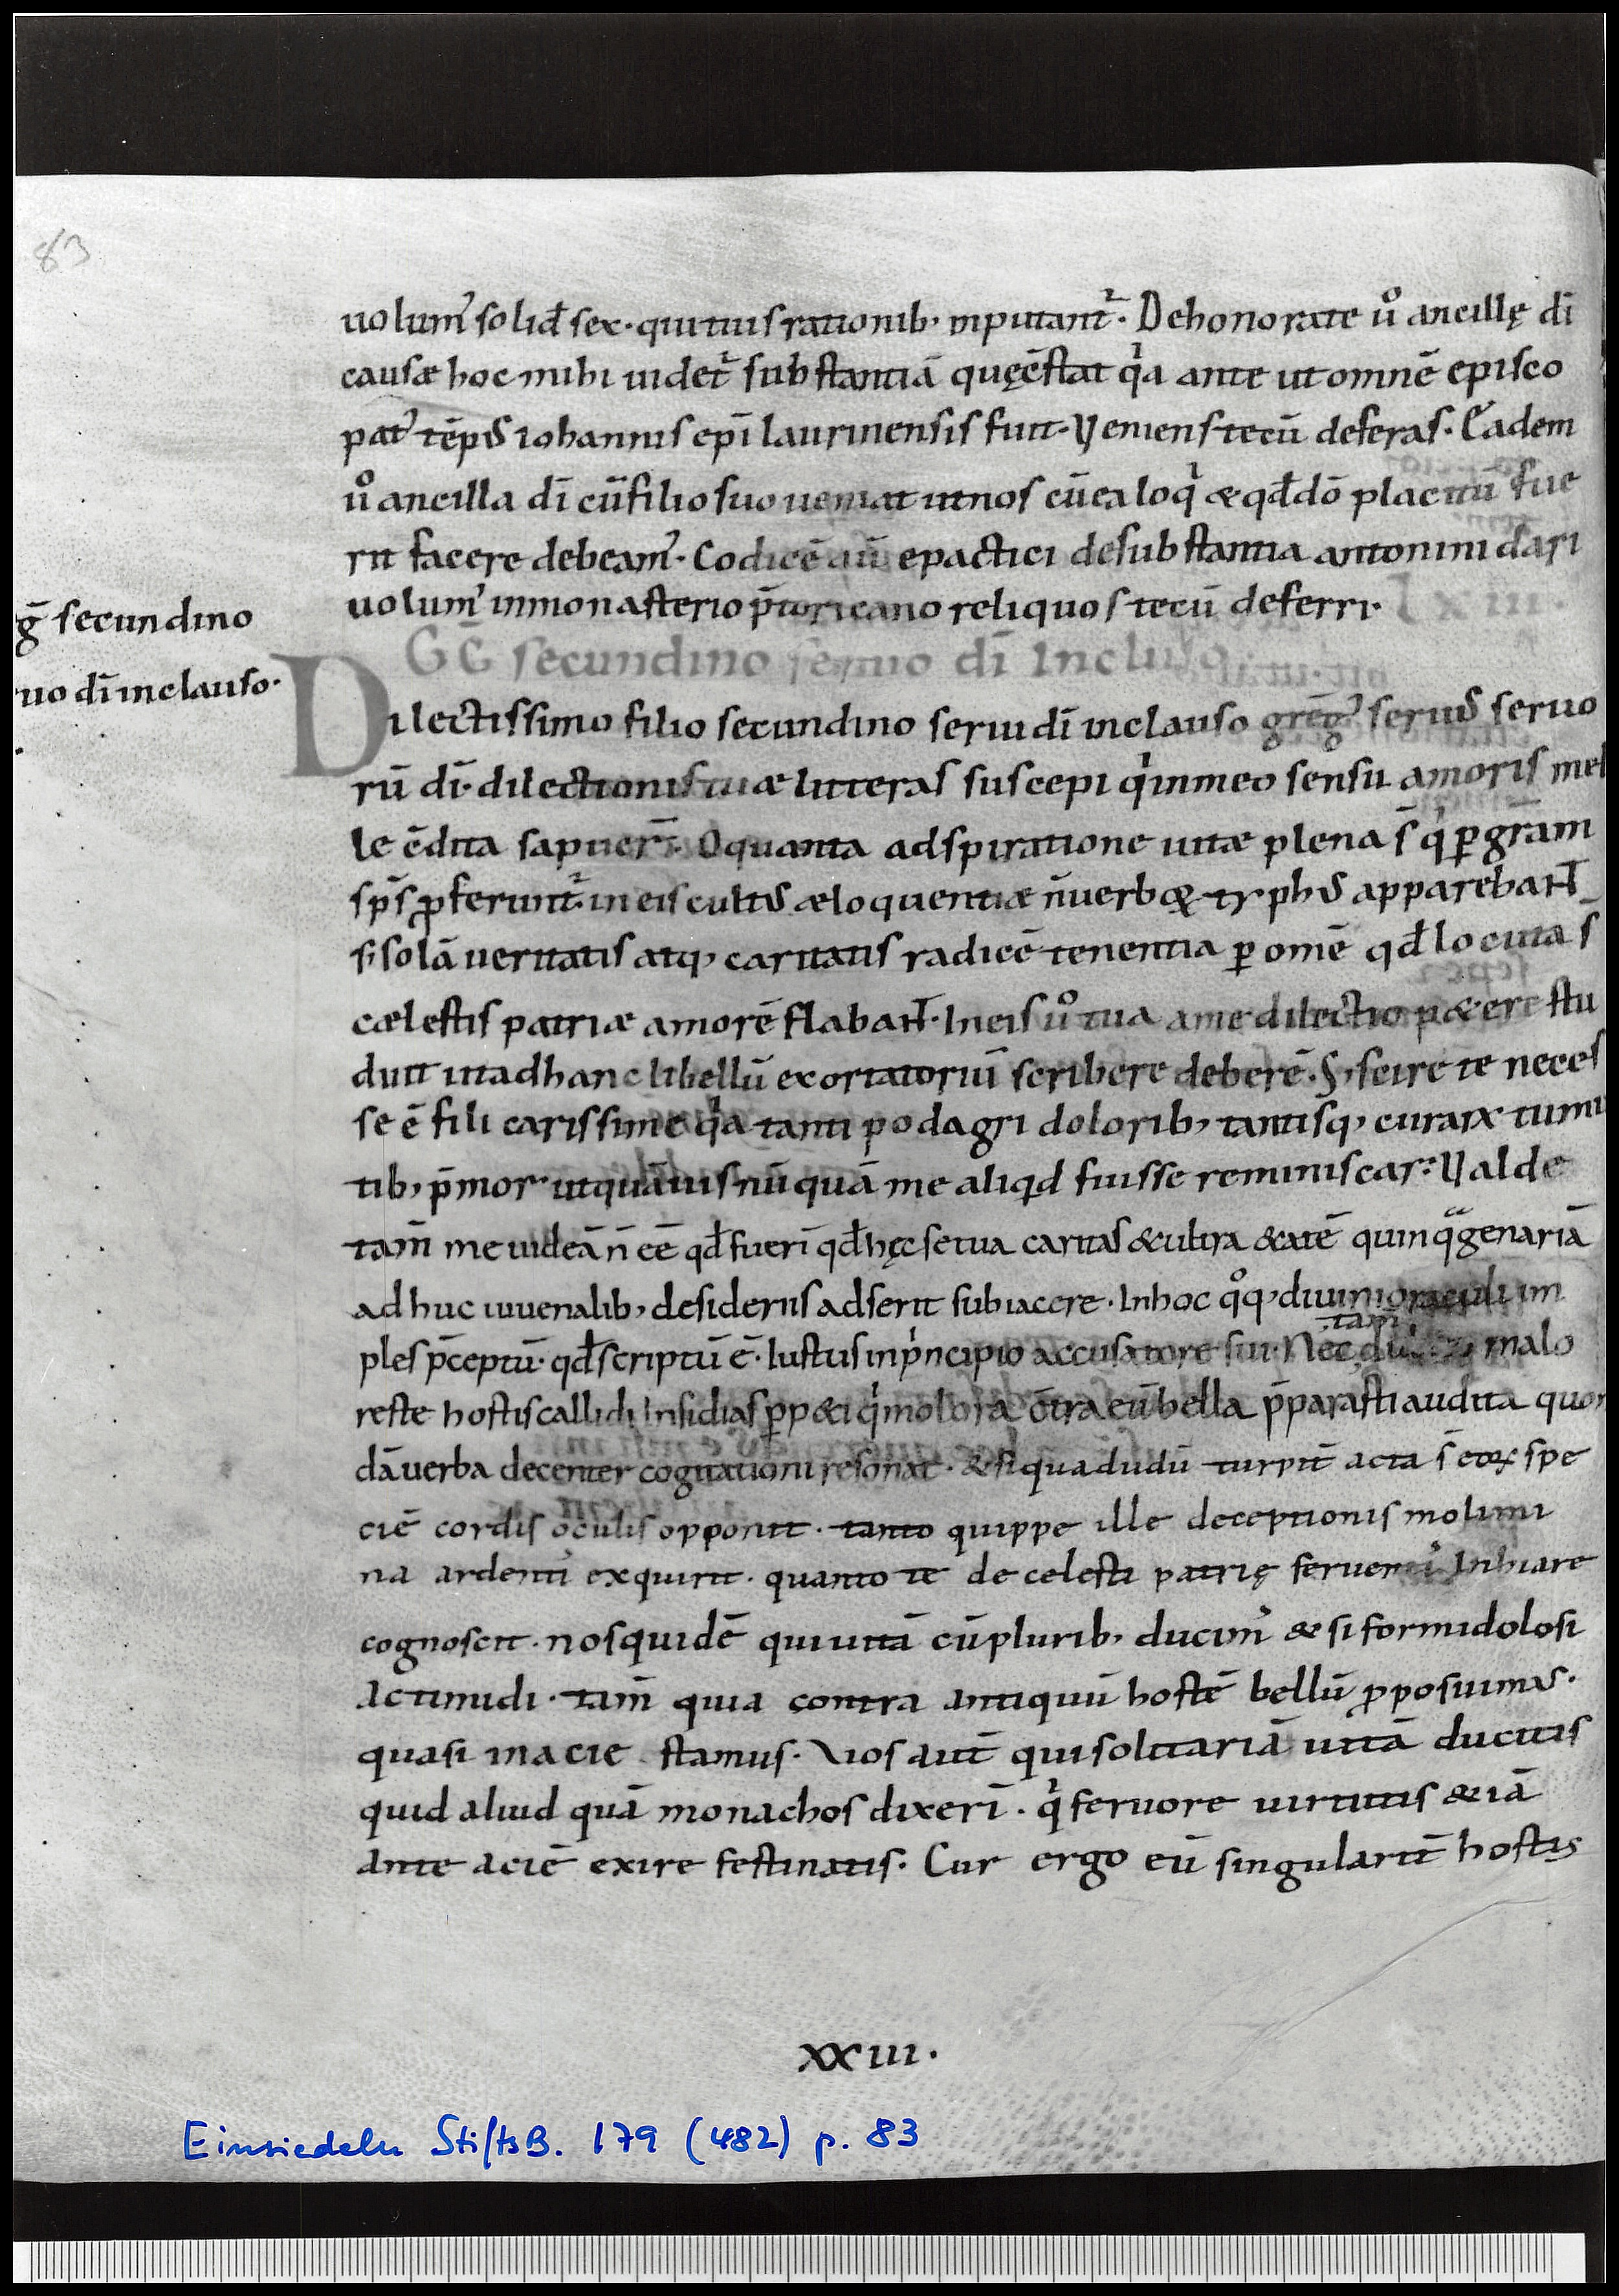 83
uolum᾽ solid̄ sex · qui tuis rationib; inputant᷑ · De honorate ů ancillę dī
causæ hoc mihi uidet᷑ substantiā quę ēstat qͥa ante ut omnē episco
pat᾽ tēpꝰ iohannis ep̄i laurinensis fuit · Veniens tecū deferas · Eadem
ů ancilla dī cū filio suo ueniat ut nos cū ea loqͥ & qd̄ dō placitū fue
rit facere debeam᾽ · Codicē aū epactici de substantia antonini dari
uolum᾽ in monasterio p̄toricano reliquos tecū deferri · lxiii ·
ḡ secundino
uo dī inclauso ·
GG secundino seruo dī Incluso
Dilectissimo filio secundino serui dī inclauso grēg᾽ seruꝰ seruo
rū dī · dilectionis tuæ litteras suscepi qͥ in meo sensu amoris mel
le ēdita sapuer̄ · O quanta adspiratione uitæ plena s̄ qͥ ꝑ gr̄am
sp̄s ꝓferunt᷑ · in eis cultꝰ æloquentiæ n̄ uerboꝝ typhꝰ apparebant
si solā ueritatis atq; caritatis radicē tenentia ꝑ omē qd̄ locuta s̄
cælestis patriæ amorē flabant · In eis ů tua a me dilectio p&ere stu
duit ut ad hanc libellū exortatoriū scribere deberē · S; scire te neces
se ē fili carissime qͥa tanti podagri dolorib; tantisq; curarꝝ tumul
tib; p̄mor · ut quāuis nū quā me aliqd fuisse reminiscar · Valde
tam̄ me uideā n̄ eē qd̄ fueri᷑ qd̄ hęc se tua caritas & ultra &atē quinqᵃgenariā
ad huc iuuenalib; desideriis adserit subiacere · In hoc qͦq; diuini oraculi im
ples p̄ceptū · qd̄ scriptū ē · Iustus in pͥncipio accusatore sui · Nec
tam̄
malo
reste hostis callidi Insidias ꝑp&i qͥ molora ōtra eū bella p̄parasti audita quon
dā uerba decenter cogitationi resonat · & si qua dudū turpit̄ acta s̄ eoꝝ spe
ciē cordis oculis opponit · tanto quippe ille deceptionis molimi
na ardenti᾽ exquirit · quanto te de celesti patrię feruenti᾽ Inhiare
cognoscit · nos quidē qui uitā cū plurib; ducim᾽ & si formidolosi
ac timidi · tam̄ quia contra antiquū hostē bellū ꝓposuimꝰ ·
quasi in acie stamus · Vos aut̄ qui solitariā uitā ducitis
quid aliud quā monachos dixeri᷑ · qͥ feruore uirtutis & iā
ante aciē exire festinatis · Cur ergo eū singularit̄ hostis
xxiii ·
Einsiedeln StiftsB. 179 (482) p. 83